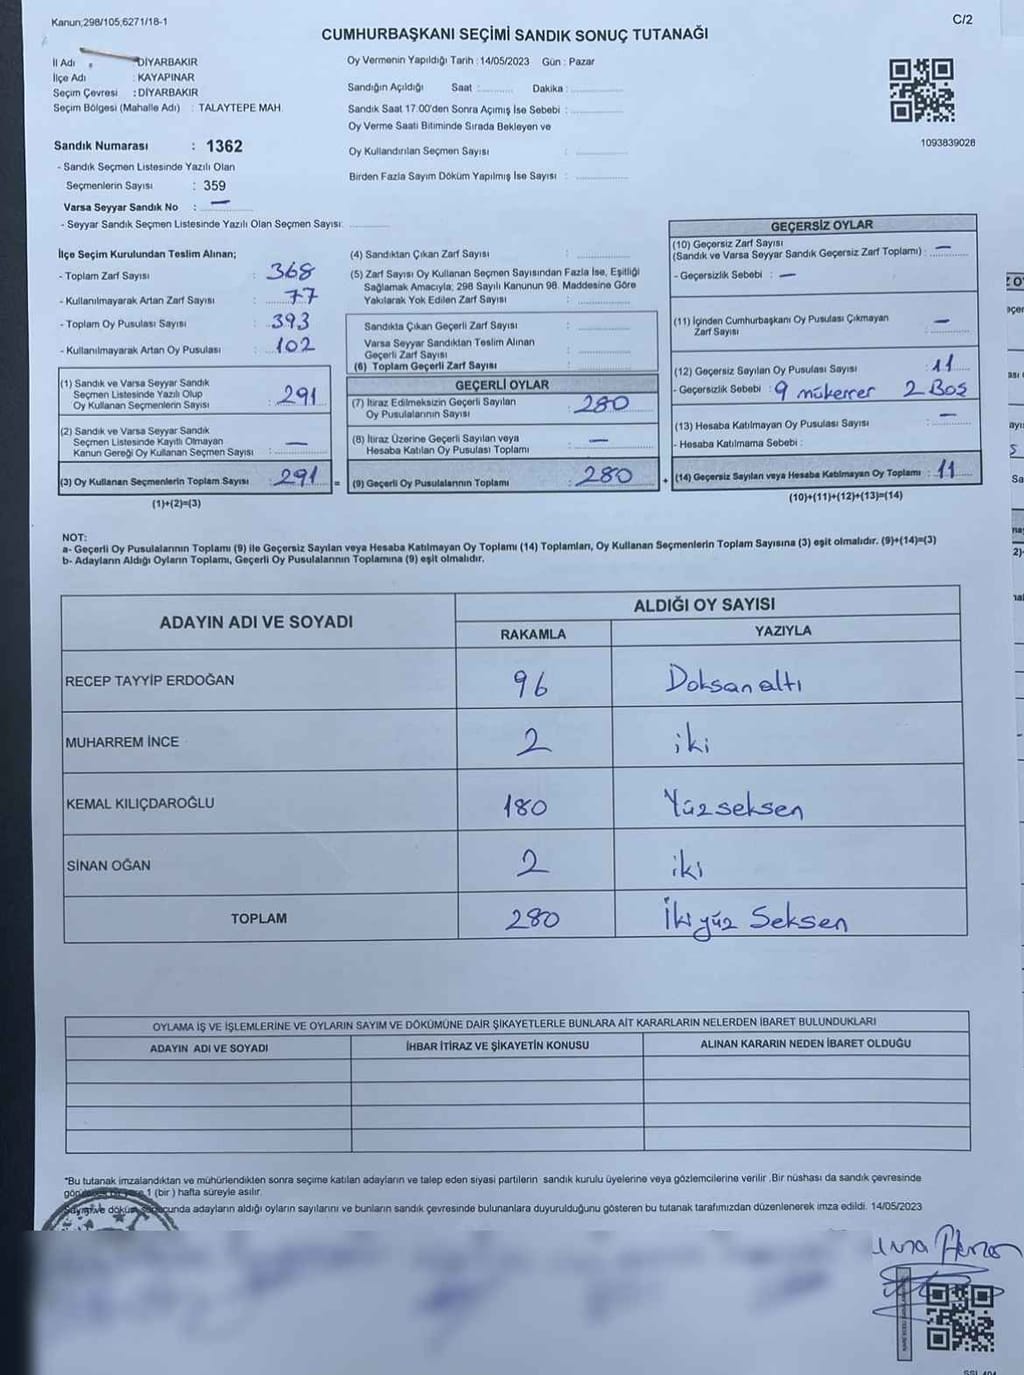 Kanun;298/105,6271/18-1
C/2
CUMHURBAŞKANI SEÇİMİ SANDIK SONUÇ TUTANAĞI
İl Adı : DİYARBAKIR
İlçe Adı : KAYAPINAR
Seçim Çevresi : DİYARBAKIR
Seçim Bölgesi (Mahalle Adı) : TALAYTEPE MAH.
Oy Vermenin Yapıldığı Tarih : 14/05/2023 Gün : Pazar
Sandığın Açıldığı Saat : Dakika :
Sandık Saat 17:00'den Sonra Açılmış İse Sebebi :
Oy Verme Saati Bitiminde Sırada Bekleyen ve
Oy Kullandırılan Seçmen Sayısı :
Birden Fazla Sayım Döküm Yapılmış İse Sayısı :
1093839028
Sandık Numarası : 1362
- Sandık Seçmen Listesinde Yazılı Olan
Seçmenlerin Sayısı : 359
Varsa Seyyar Sandık No : —
- Seyyar Sandık Seçmen Listesinde Yazılı Olan Seçmen Sayısı:
İlçe Seçim Kurulundan Teslim Alınan;
- Toplam Zarf Sayısı : 368
- Kullanılmayarak Artan Zarf Sayısı : 77
- Toplam Oy Pusulası Sayısı : 393
- Kullanılmayarak Artan Oy Pusulası : 102
(1) Sandık ve Varsa Seyyar Sandık
Seçmen Listesinde Yazılı Olup
Oy Kullanan Seçmenlerin Sayısı : 291
(2) Sandık ve Varsa Seyyar Sandık
Seçmen Listesinde Kayıtlı Olmayan
Kanun Gereği Oy Kullanan Seçmen Sayısı : —
(3) Oy Kullanan Seçmenlerin Toplam Sayısı : 291
(1)+(2)=(3)
(4) Sandıktan Çıkan Zarf Sayısı :
(5) Zarf Sayısı Oy Kullanan Seçmen Sayısından Fazla İse, Eşitliği
Sağlamak Amacıyla; 298 Sayılı Kanunun 98. Maddesine Göre
Yakılarak Yok Edilen Zarf Sayısı :
Sandıkta Çıkan Geçerli Zarf Sayısı :
Varsa Seyyar Sandıktan Teslim Alınan
Geçerli Zarf Sayısı :
(6) Toplam Geçerli Zarf Sayısı :
GEÇERLİ OYLAR
(7) İtiraz Edilmeksizin Geçerli Sayılan
Oy Pusulalarının Sayısı : 280
(8) İtiraz Üzerine Geçerli Sayılan veya
Hesaba Katılan Oy Pusulası Toplamı : —
= (9) Geçerli Oy Pusulalarının Toplamı : 280
GEÇERSİZ OYLAR
(10) Geçersiz Zarf Sayısı
(Sandık ve Varsa Seyyar Sandık Geçersiz Zarf Toplamı) : —
- Geçersizlik Sebebi : —
(11) İçinden Cumhurbaşkanı Oy Pusulası Çıkmayan
Zarf Sayısı : —
(12) Geçersiz Sayılan Oy Pusulası Sayısı : 11
- Geçersizlik Sebebi : 9 mükerrer 2 Boş
(13) Hesaba Katılmayan Oy Pusulası Sayısı : —
- Hesaba Katılmama Sebebi :
+ (14) Geçersiz Sayılan veya Hesaba Katılmayan Oy Toplamı : 11
(10)+(11)+(12)+(13)=(14)
NOT:
a- Geçerli Oy Pusulalarının Toplamı (9) ile Geçersiz Sayılan veya Hesaba Katılmayan Oy Toplamı (14) Toplamları, Oy Kullanan Seçmenlerin Toplam Sayısına (3) eşit olmalıdır. (9)+(14)=(3)
b- Adayların Aldığı Oyların Toplamı, Geçerli Oy Pusulalarının Toplamına (9) eşit olmalıdır.
ADAYIN ADI VE SOYADI
ALDIĞI OY SAYISI
RAKAMLA YAZIYLA
RECEP TAYYİP ERDOĞAN 96 Doksan altı
MUHARREM İNCE 2 iki
KEMAL KILIÇDAROĞLU 180 Yüzseksen
SİNAN OĞAN 2 iki
TOPLAM 280 İkiyüz Seksen
OYLAMA İŞ VE İŞLEMLERİNE VE OYLARIN SAYIM VE DÖKÜMÜNE DAİR ŞİKAYETLERLE BUNLARA AİT KARARLARIN NELERDEN İBARET BULUNDUKLARI
ADAYIN ADI VE SOYADI İHBAR İTİRAZ VE ŞİKAYETİN KONUSU ALINAN KARARIN NEDEN İBARET OLDUĞU
*Bu tutanak imzalandıktan ve mühürlendikten sonra seçime katılan adayların ve talep eden siyasi partilerin sandık kurulu üyelerine veya gözlemcilerine verilir .Bir nüshası da sandık çevresinde
1 (bir ) hafta süreyle asılır.
adayların aldığı oyların sayılarını ve bunların sandık çevresinde bulunanlara duyurulduğunu gösteren bu tutanak tarafımızdan düzenlenerek imza edildi. 14/05/2023